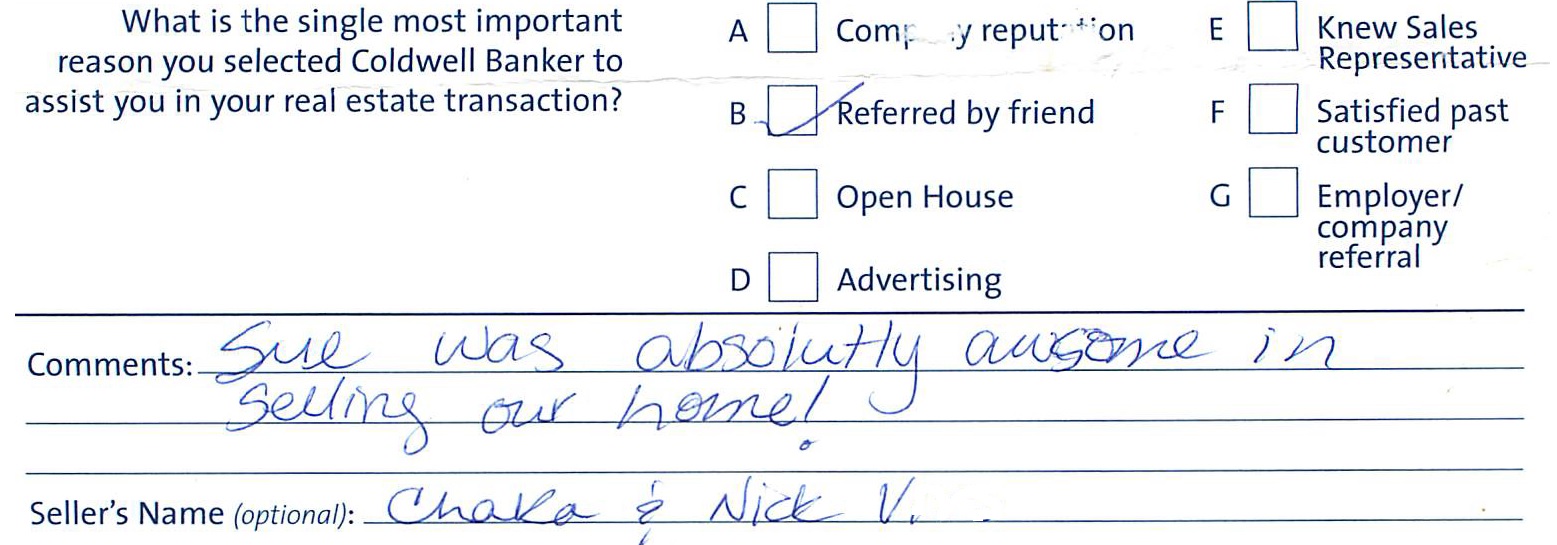 What is the single most important
reason you selected Coldwell Banker to
assist you in your real estate transaction?
A
B Referred by friend
C Open House
D Advertising
E Knew Sales
Representative
F Satisfied past
customer
G Employer/
company
referral
Comments: Sue was absolutly awsome in
selling our home!
Seller's Name (optional): Chaka & Nick V.